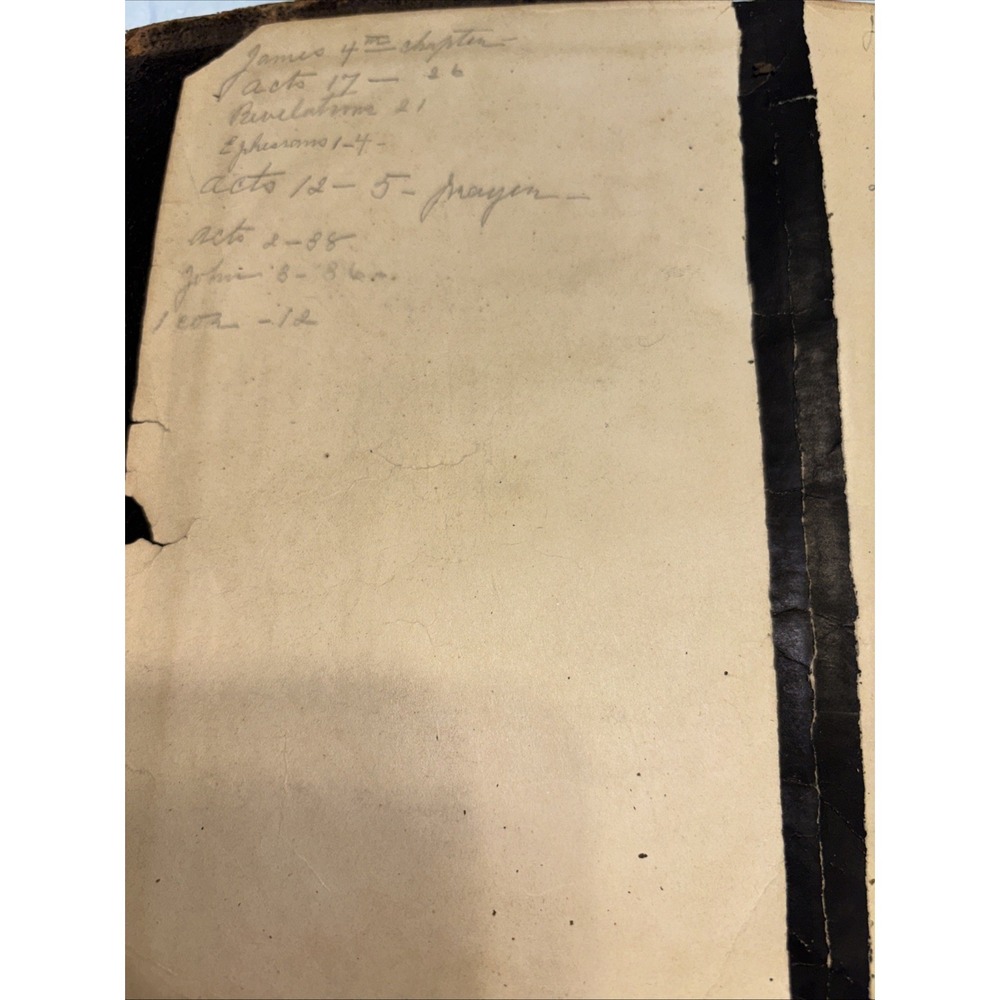 James 4th chapter
Acts 17 - 26
Revelations 21
Ephesians 1-4-
Acts 12 - 5 - prayer -
Acts 2-38
John 3-36
1 cor - 12